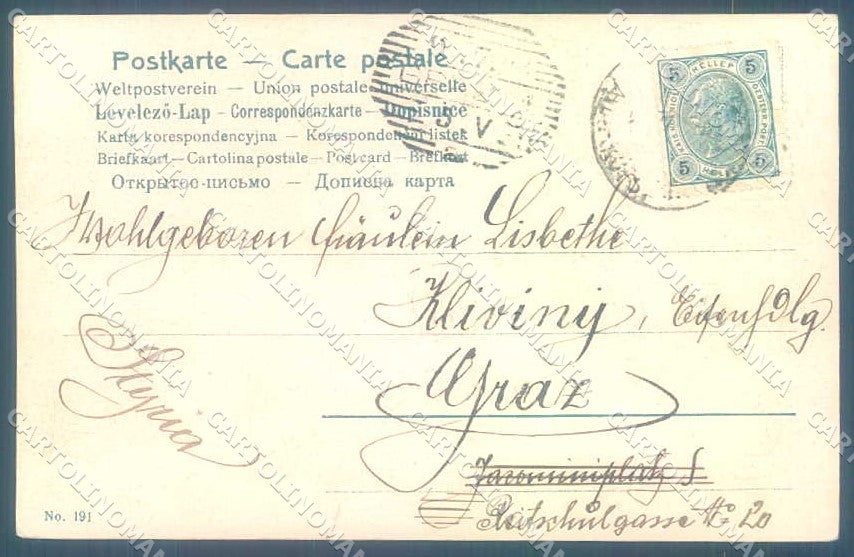 Postkarte — Carte postale
Weltpostverein — Union postale universelle
Levelező-Lap - Correspondenzkarte - Dopisnice
Karta korespondencyjna — Korespondenční lístek
Briefkaart — Cartolina postale — Post card — Brefkort
Открытое-письмо — Дописна карта
5 HELLER 5
5 HELLER 5
Wohlgeboren Fräulein Lisbethe
Kliviny,
Graz
Styria
Jacominiplatz
No. 20
No. 191
CARTOLINOMANIA